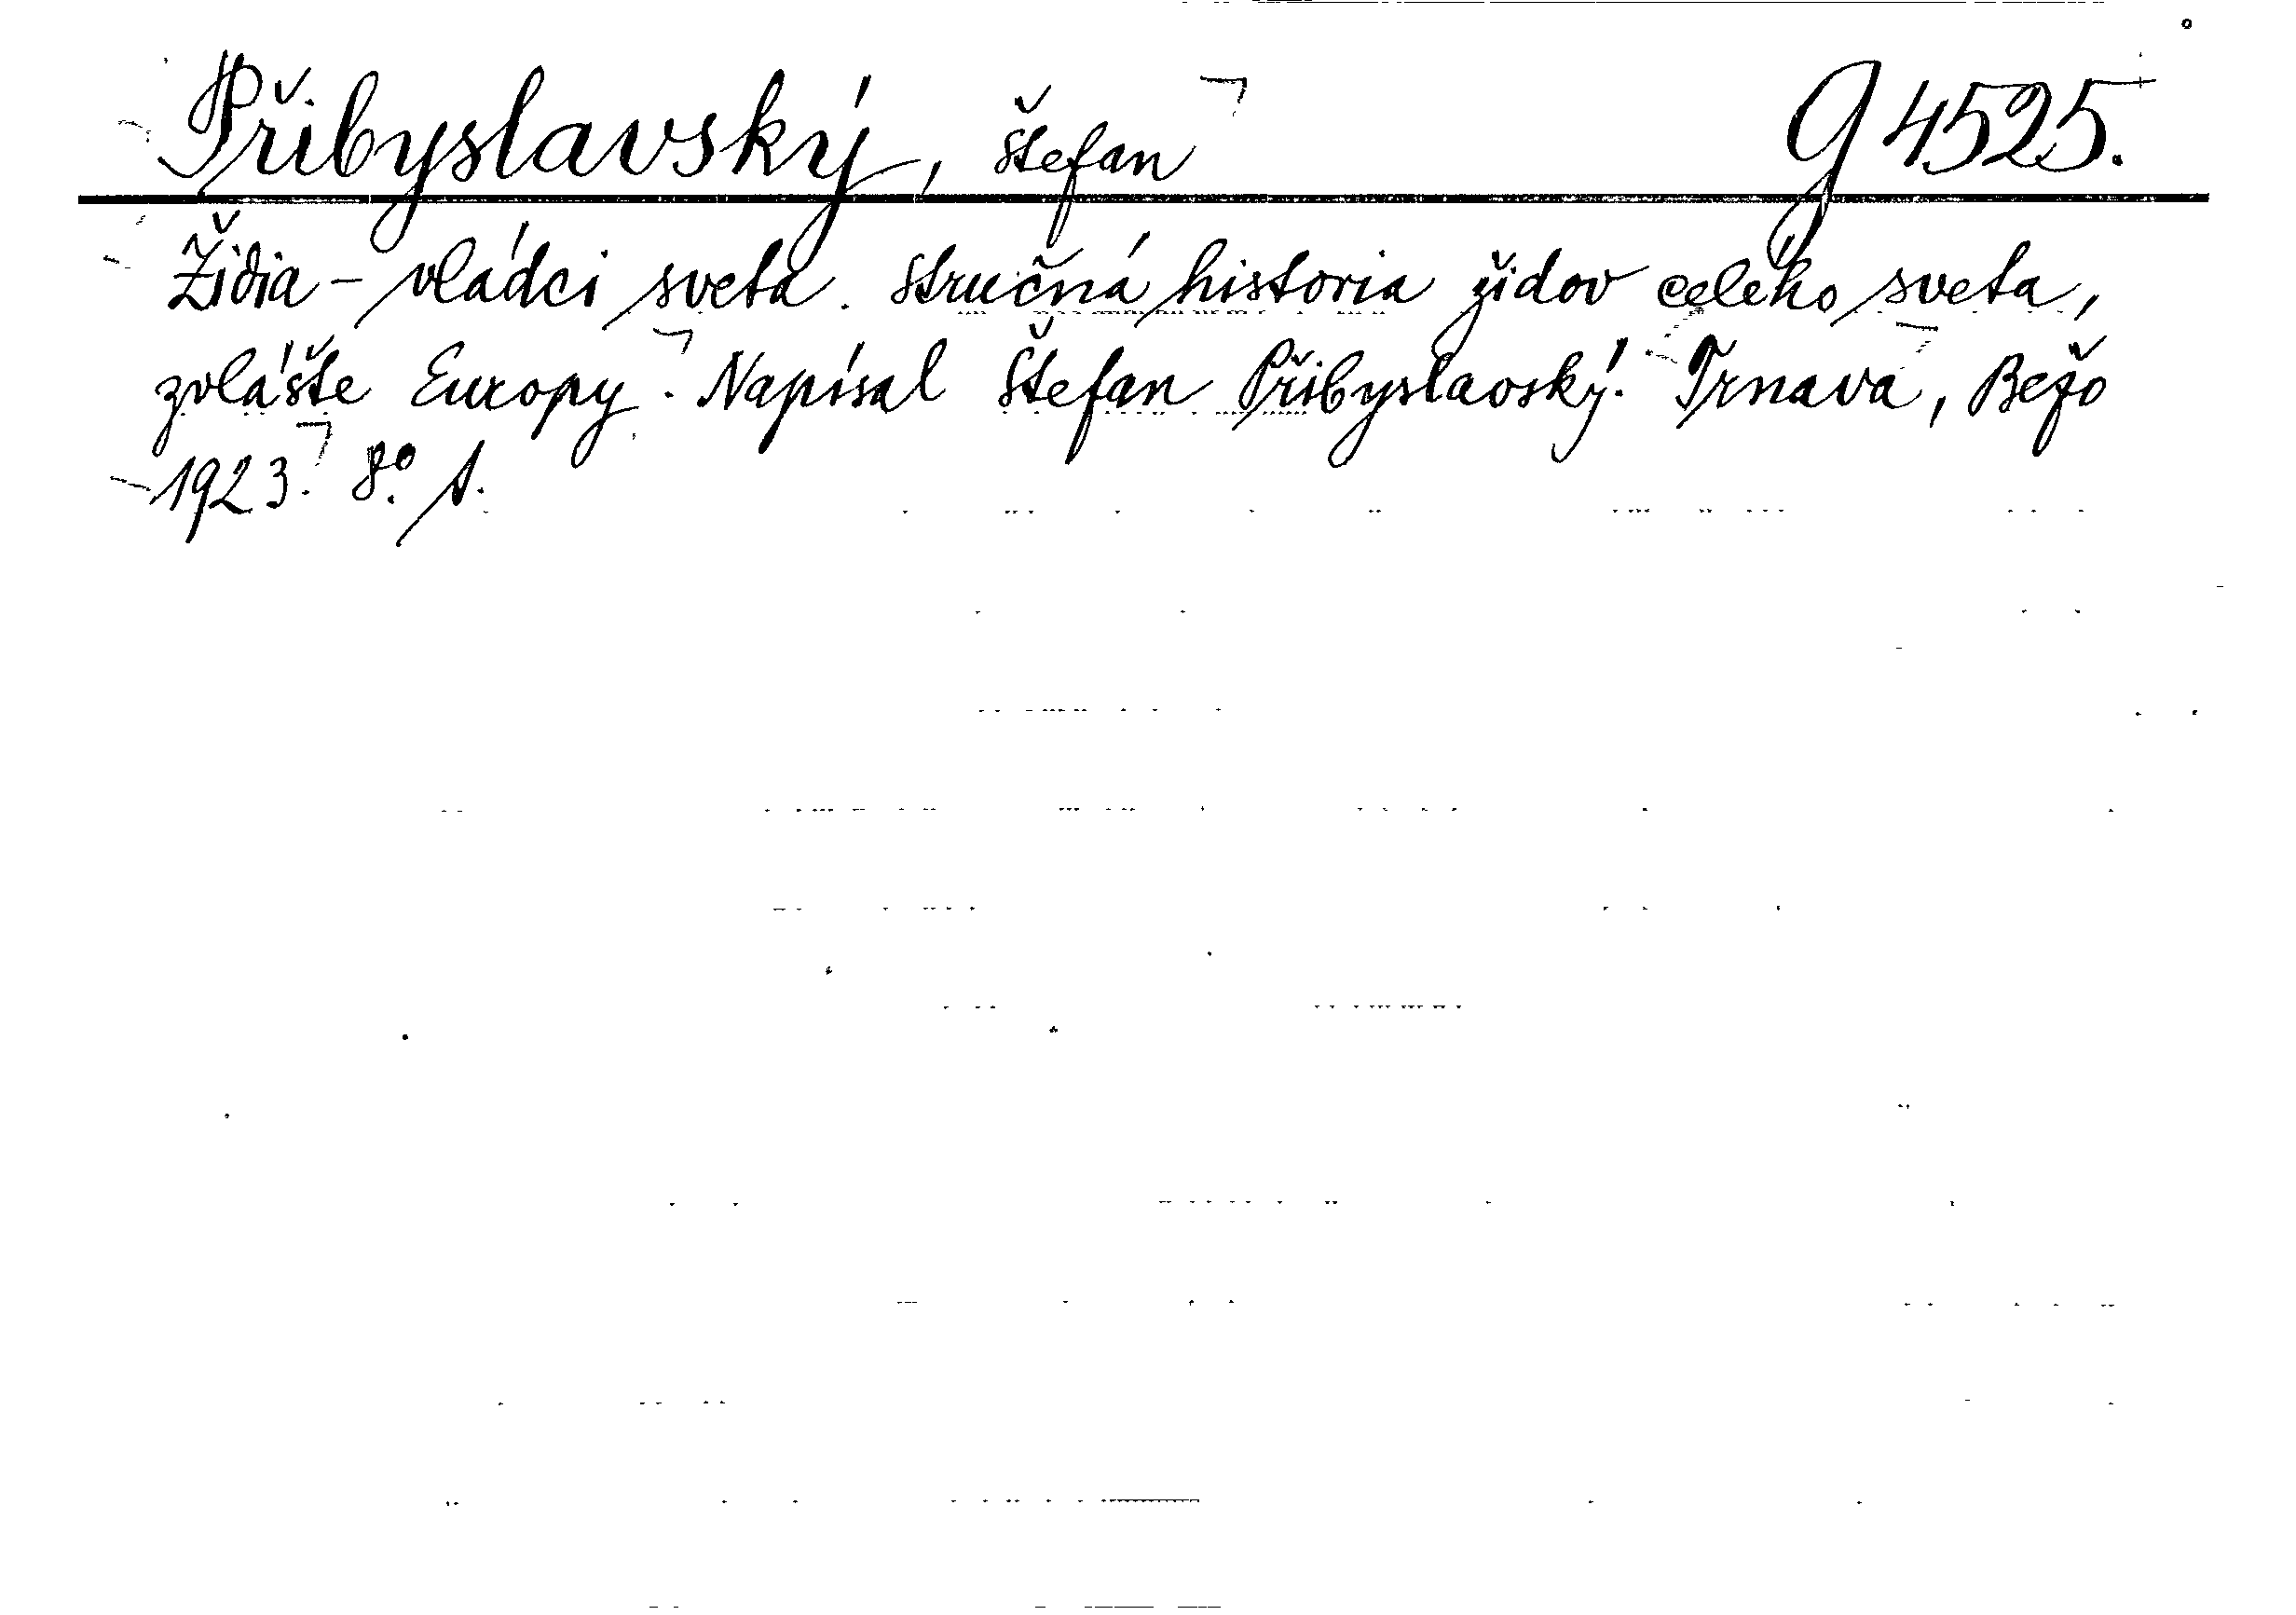 Přibyslavský, Štefan G 4525.
Židia - vládci sveta. Stručná historia židov celého sveta,
zvlášte Europy. Napísal Štefan Přibyslavský. Trnava, Bežo
1923. 8° s.